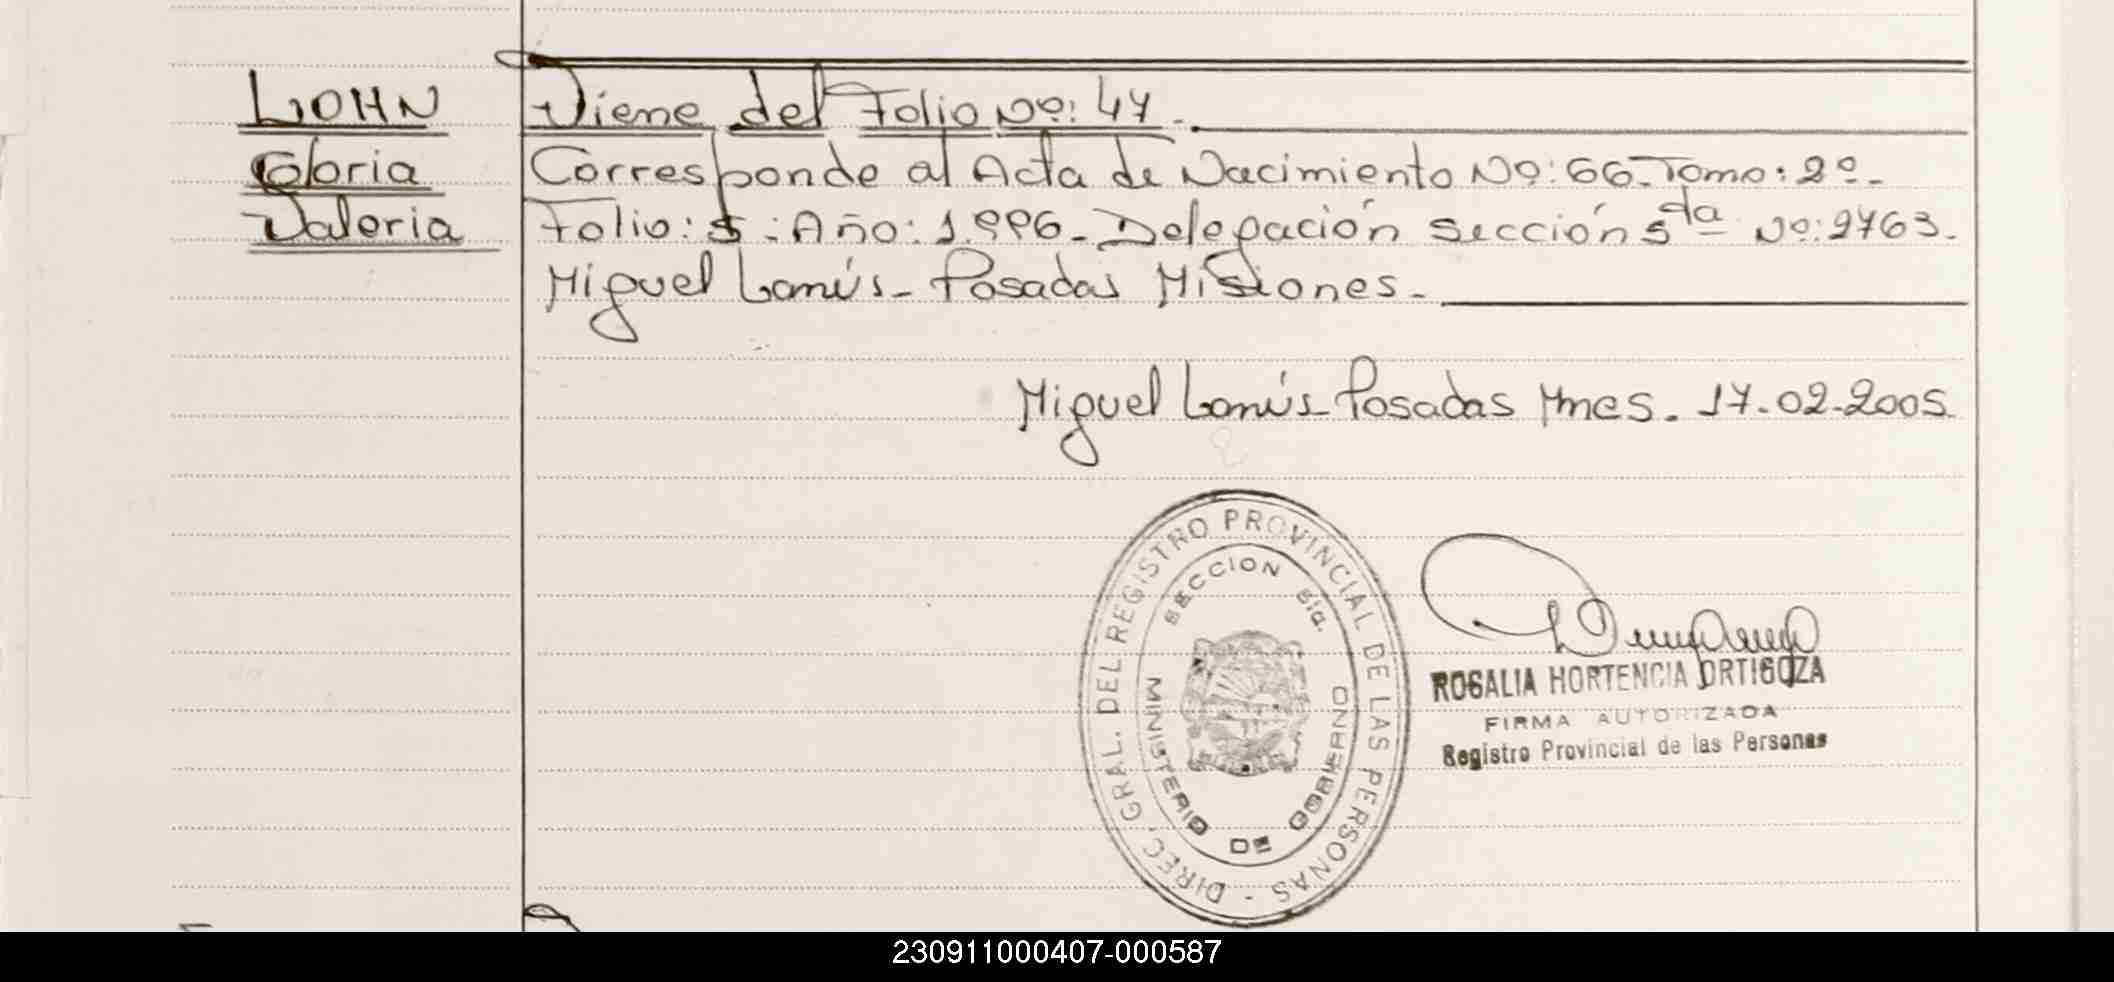 LOHN
Gloria
Valeria
Viene del Folio Nº: 47.
Corresponde al Acta de Nacimiento Nº: 66. Tomo: 2º.
Folio: 5. Año: 1.996. Delegación Sección 5ta Nº: 2763.
Miguel Lanús. Posadas Misiones.
Miguel Lanús Posadas Mnes. 17.02.2005.
DIREC. GRAL. DEL REGISTRO PROVINCIAL DE LAS PERSONAS -
SECCION 5ta.
MINISTERIO DE GOBIERNO
ROSALIA HORTENCIA ORTIGOZA
FIRMA AUTORIZADA
Registro Provincial de las Personas
230911000407-000587